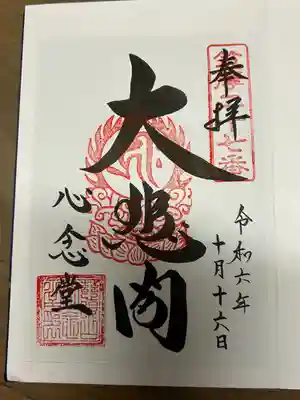 奉拝
大悲閣
令和六年
十月十六日
心念堂